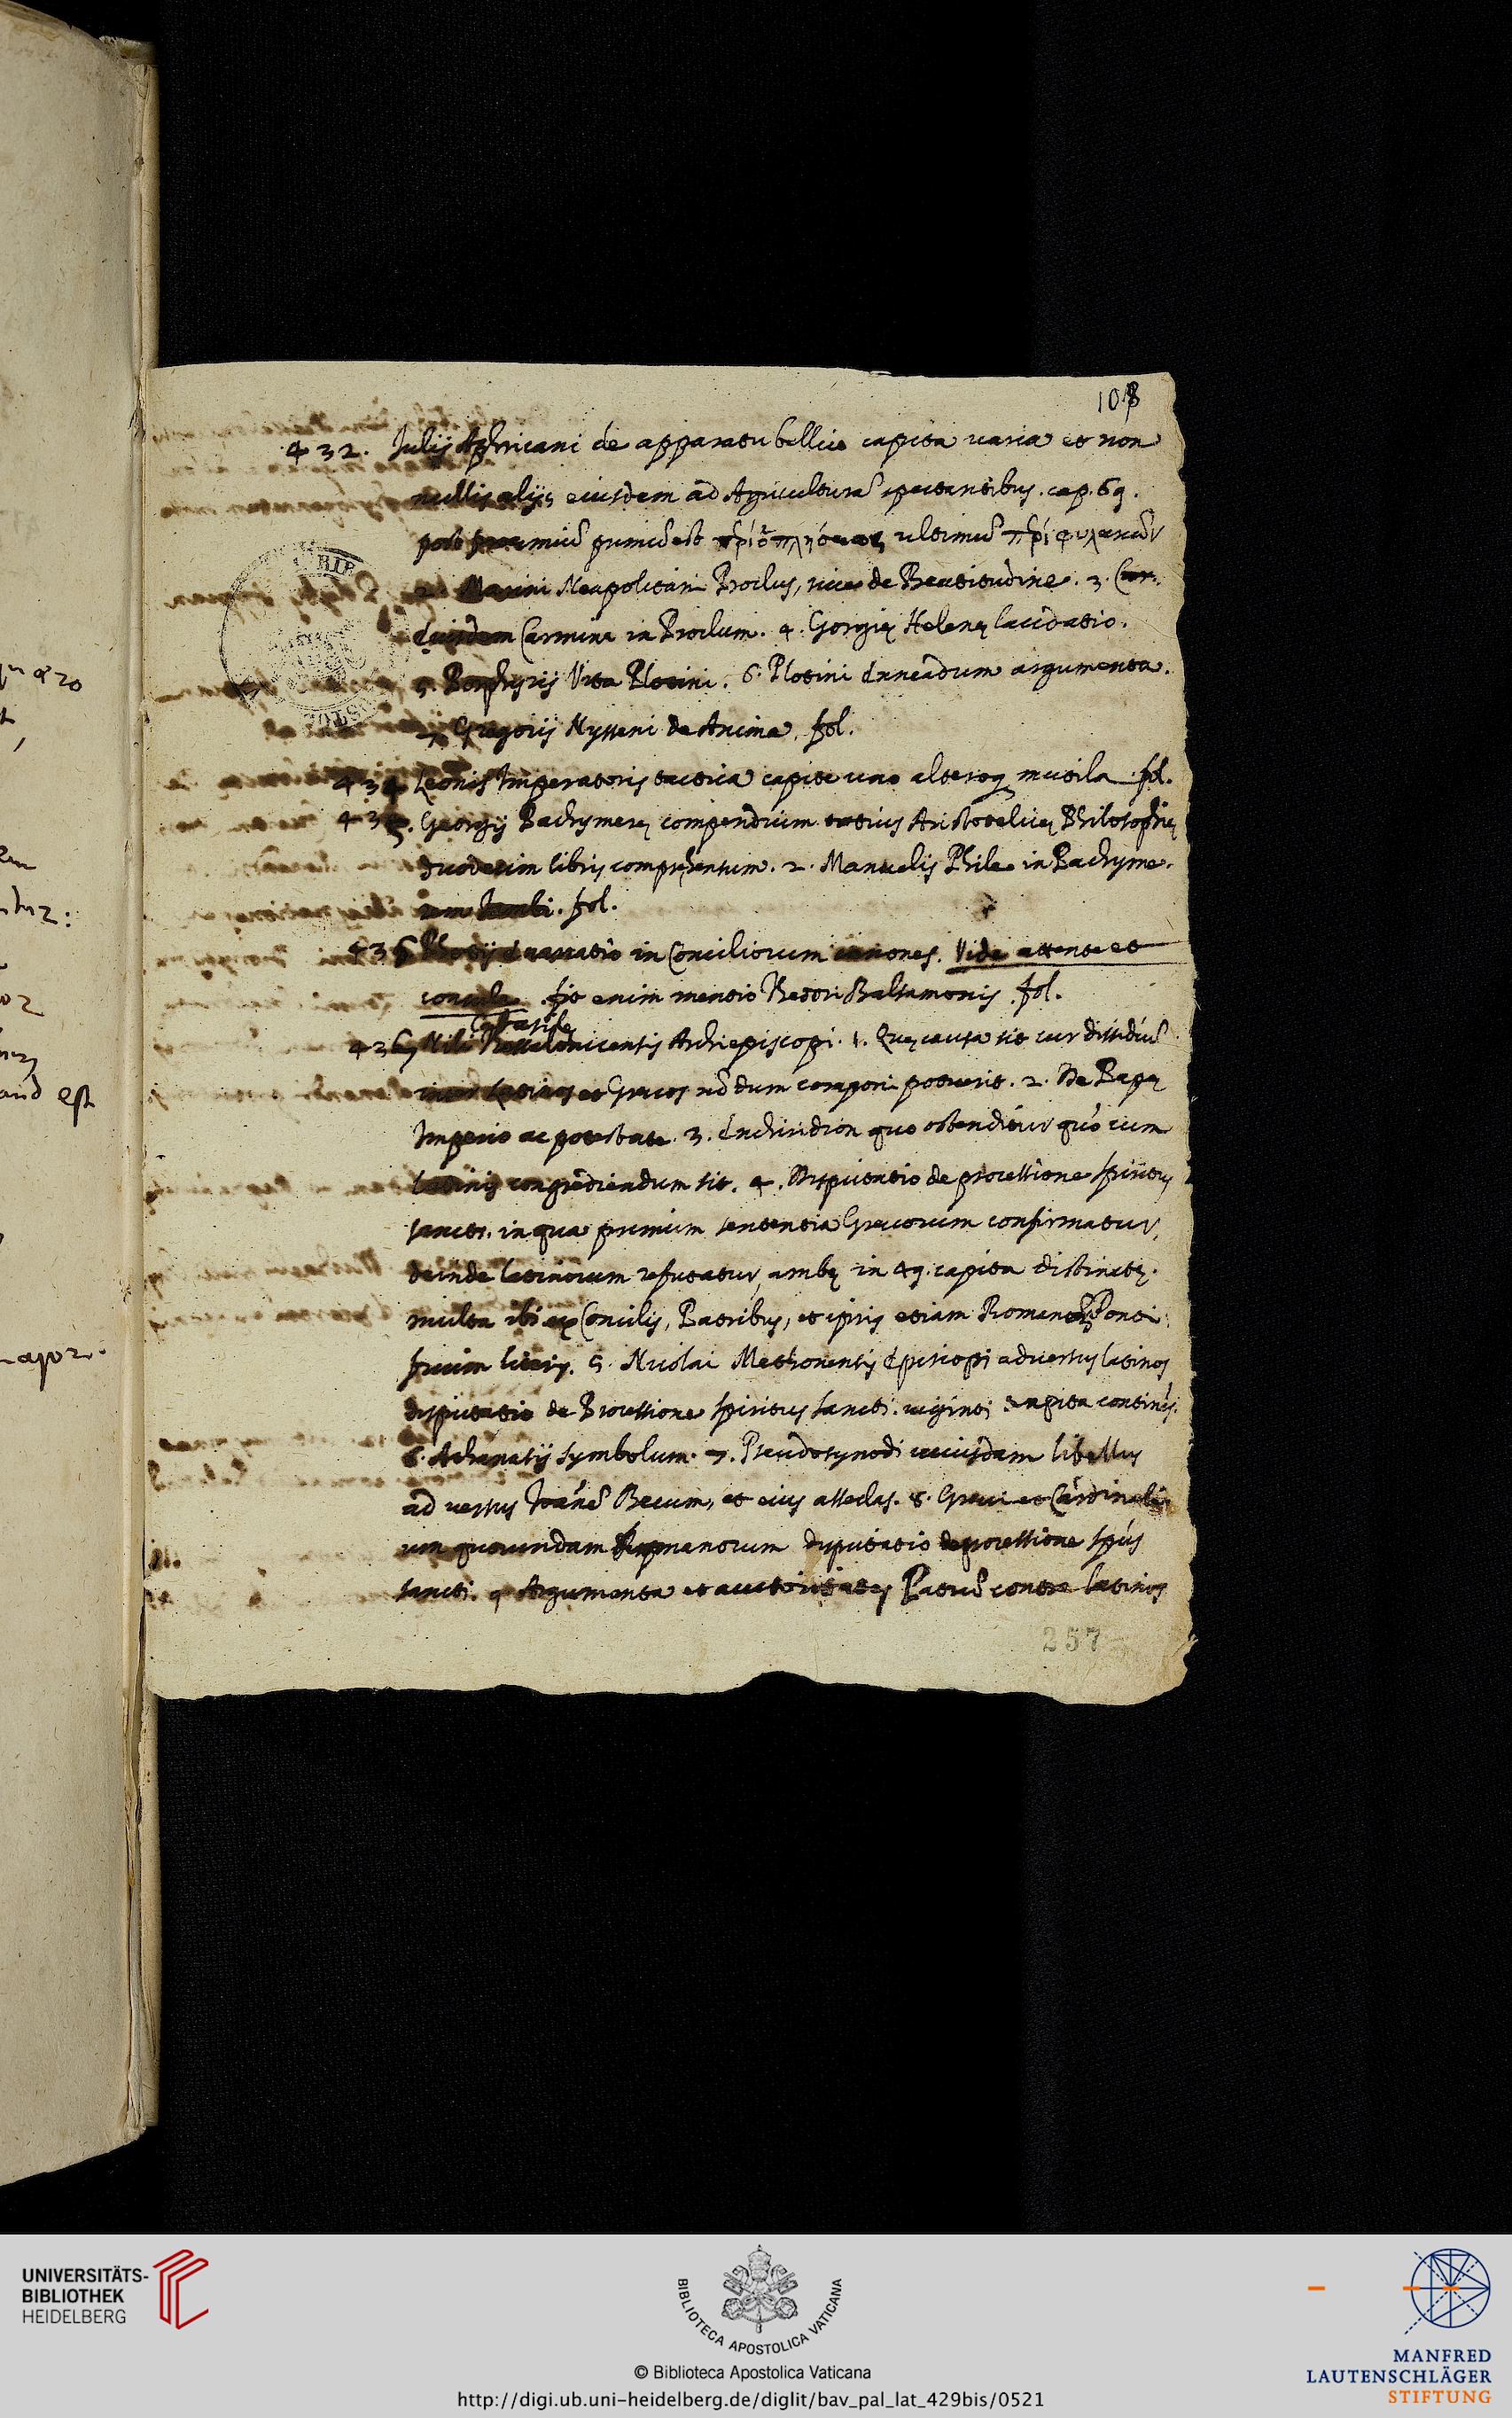 108
432. Julij Aphricani de apparatu bellico capita varia et non
nullis alijs eiusdem ad Agriculturã spectantibus. cap. 69.
post proemiũ primũ est πρὶ ὅπλήσεως ultimũ πρὶ φυλακῶν
2. Marini Neapolitani Proclus, sive de Beatitudine. 3.
Eiusdem Carmina in Proclum. 4. Gorgię Helenę laudatio.
5. Porphyrij Vita Plotini. 6. Plotini Enneadum argumenta.
7. Gregorij Nysseni de Anima. fol.
434 Leonis Imperatoris tactica capite uno alteroq mutila. fol.
435. Georgij Pachymerę compendium totius Aristotelicę Philosophię
duodecim libris comprehensum. 2. Manuelis Phile in Pachyme-
rem Iambi. fol.
436 Photij Enarratio in Conciliorum canones. Vide attente et
consule. fit enim mentio Theodori Balsamonis. fol.
Cabasile
436 Nili Thessalonicensis Archiepiscopi. 1. Quę causa sit cur dissidiũ
inter Latinos et Grecos nõdum componi potuerit. 2. De Papę
Imperio ac potestate. 3. Enchiridion quo ostenditur quõ cum
Latinis congrediendum sit. 4. Disputatio de processione spiritus
sancti. in qua primum sententia Grecorum confirmatur,
deinde latinorum refutatur, ambę in 49. capita distinctę.
multa ibi ex Concilijs, Patribus, et ipsis etiam Romanor Ponti-
ficum literis. 5. Nicolai Methonensis Episcopi adversus latinos
disputatio de Processione spiritus sancti. viginti capita continẽs.
6. Athanasij symbolum. 7. Pseudosynodi cuiusdam libellus
adversus Joãnẽ Becum, et eius asseclas. 8. Greci et Cardinali-
um quorundam Romanorum disputatio de processione spũs
sancti. 9 Argumenta et auctoritates Patrũ contra latinos
257
UNIVERSITÄTS-
BIBLIOTHEK
HEIDELBERG
BIBLIOTECA APOSTOLICA VATICANA
© Biblioteca Apostolica Vaticana
http://digi.ub.uni-heidelberg.de/diglit/bav_pal_lat_429bis/0521
MANFRED
LAUTENSCHLÄGER
STIFTUNG